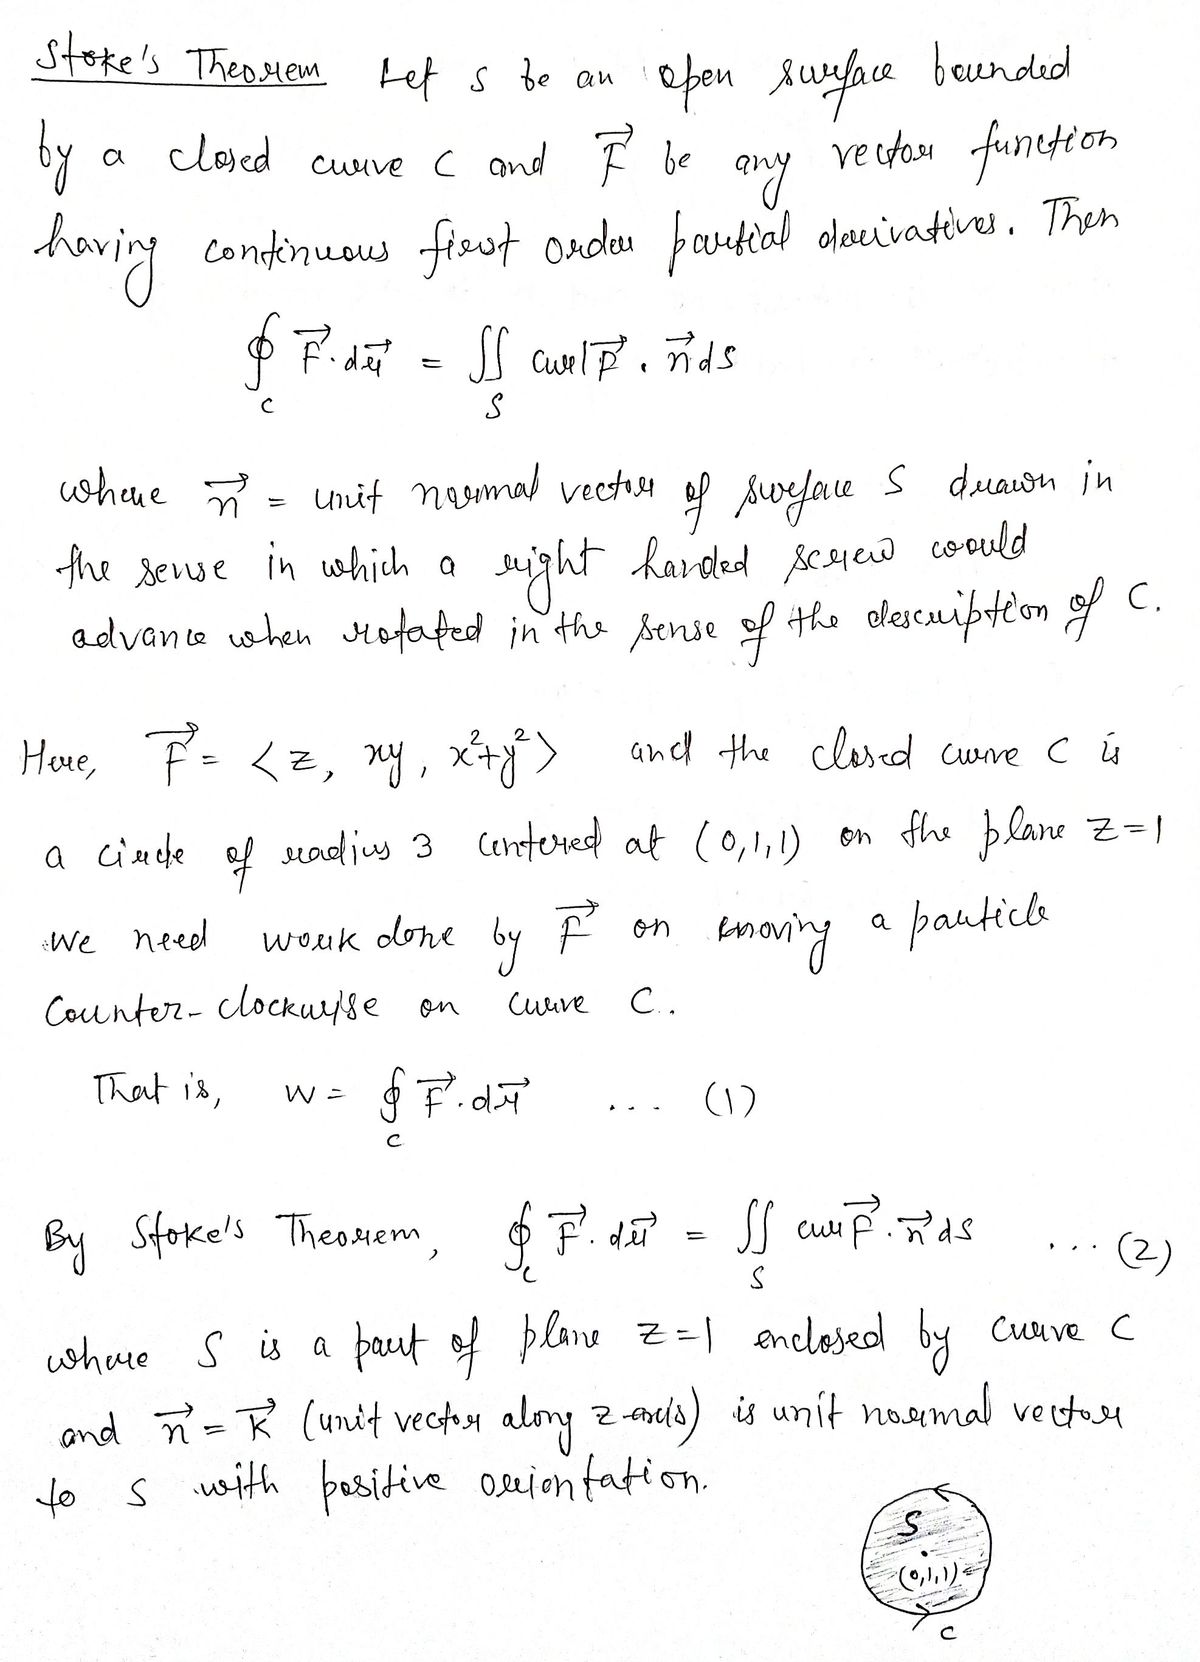 Stoke's Theorem Let S be an open surface bounded
by a closed curve C and F⃗ be any vector function
having continuous first order partial derivatives. Then
∮_C F⃗·dr⃗ = ∬_S curl F⃗ · n⃗ ds
where n⃗ = unit normal vector of surface S drawn in
the sense in which a right handed screw coould
advance when rotated in the sense of the description of C.
Here, F⃗ = <z, xy, x²+y²> and the closed curve C is
a circle of radius 3 centered at (0,1,1) on the plane z=1
we need work done by F⃗ on moving a particle
Counter-clockwise on curve C.
That is, W = ∮_C F⃗·dr⃗ ... (1)
By Stoke's Theorem, ∮_C F⃗·dr⃗ = ∬_S curl F⃗·n⃗ ds ... (2)
where S is a part of plane z=1 enclosed by curve C
and n⃗ = k⃗ (unit vector along z-axis) is unit normal vector
to S with positive orientation.
S
(0,1,1)
C